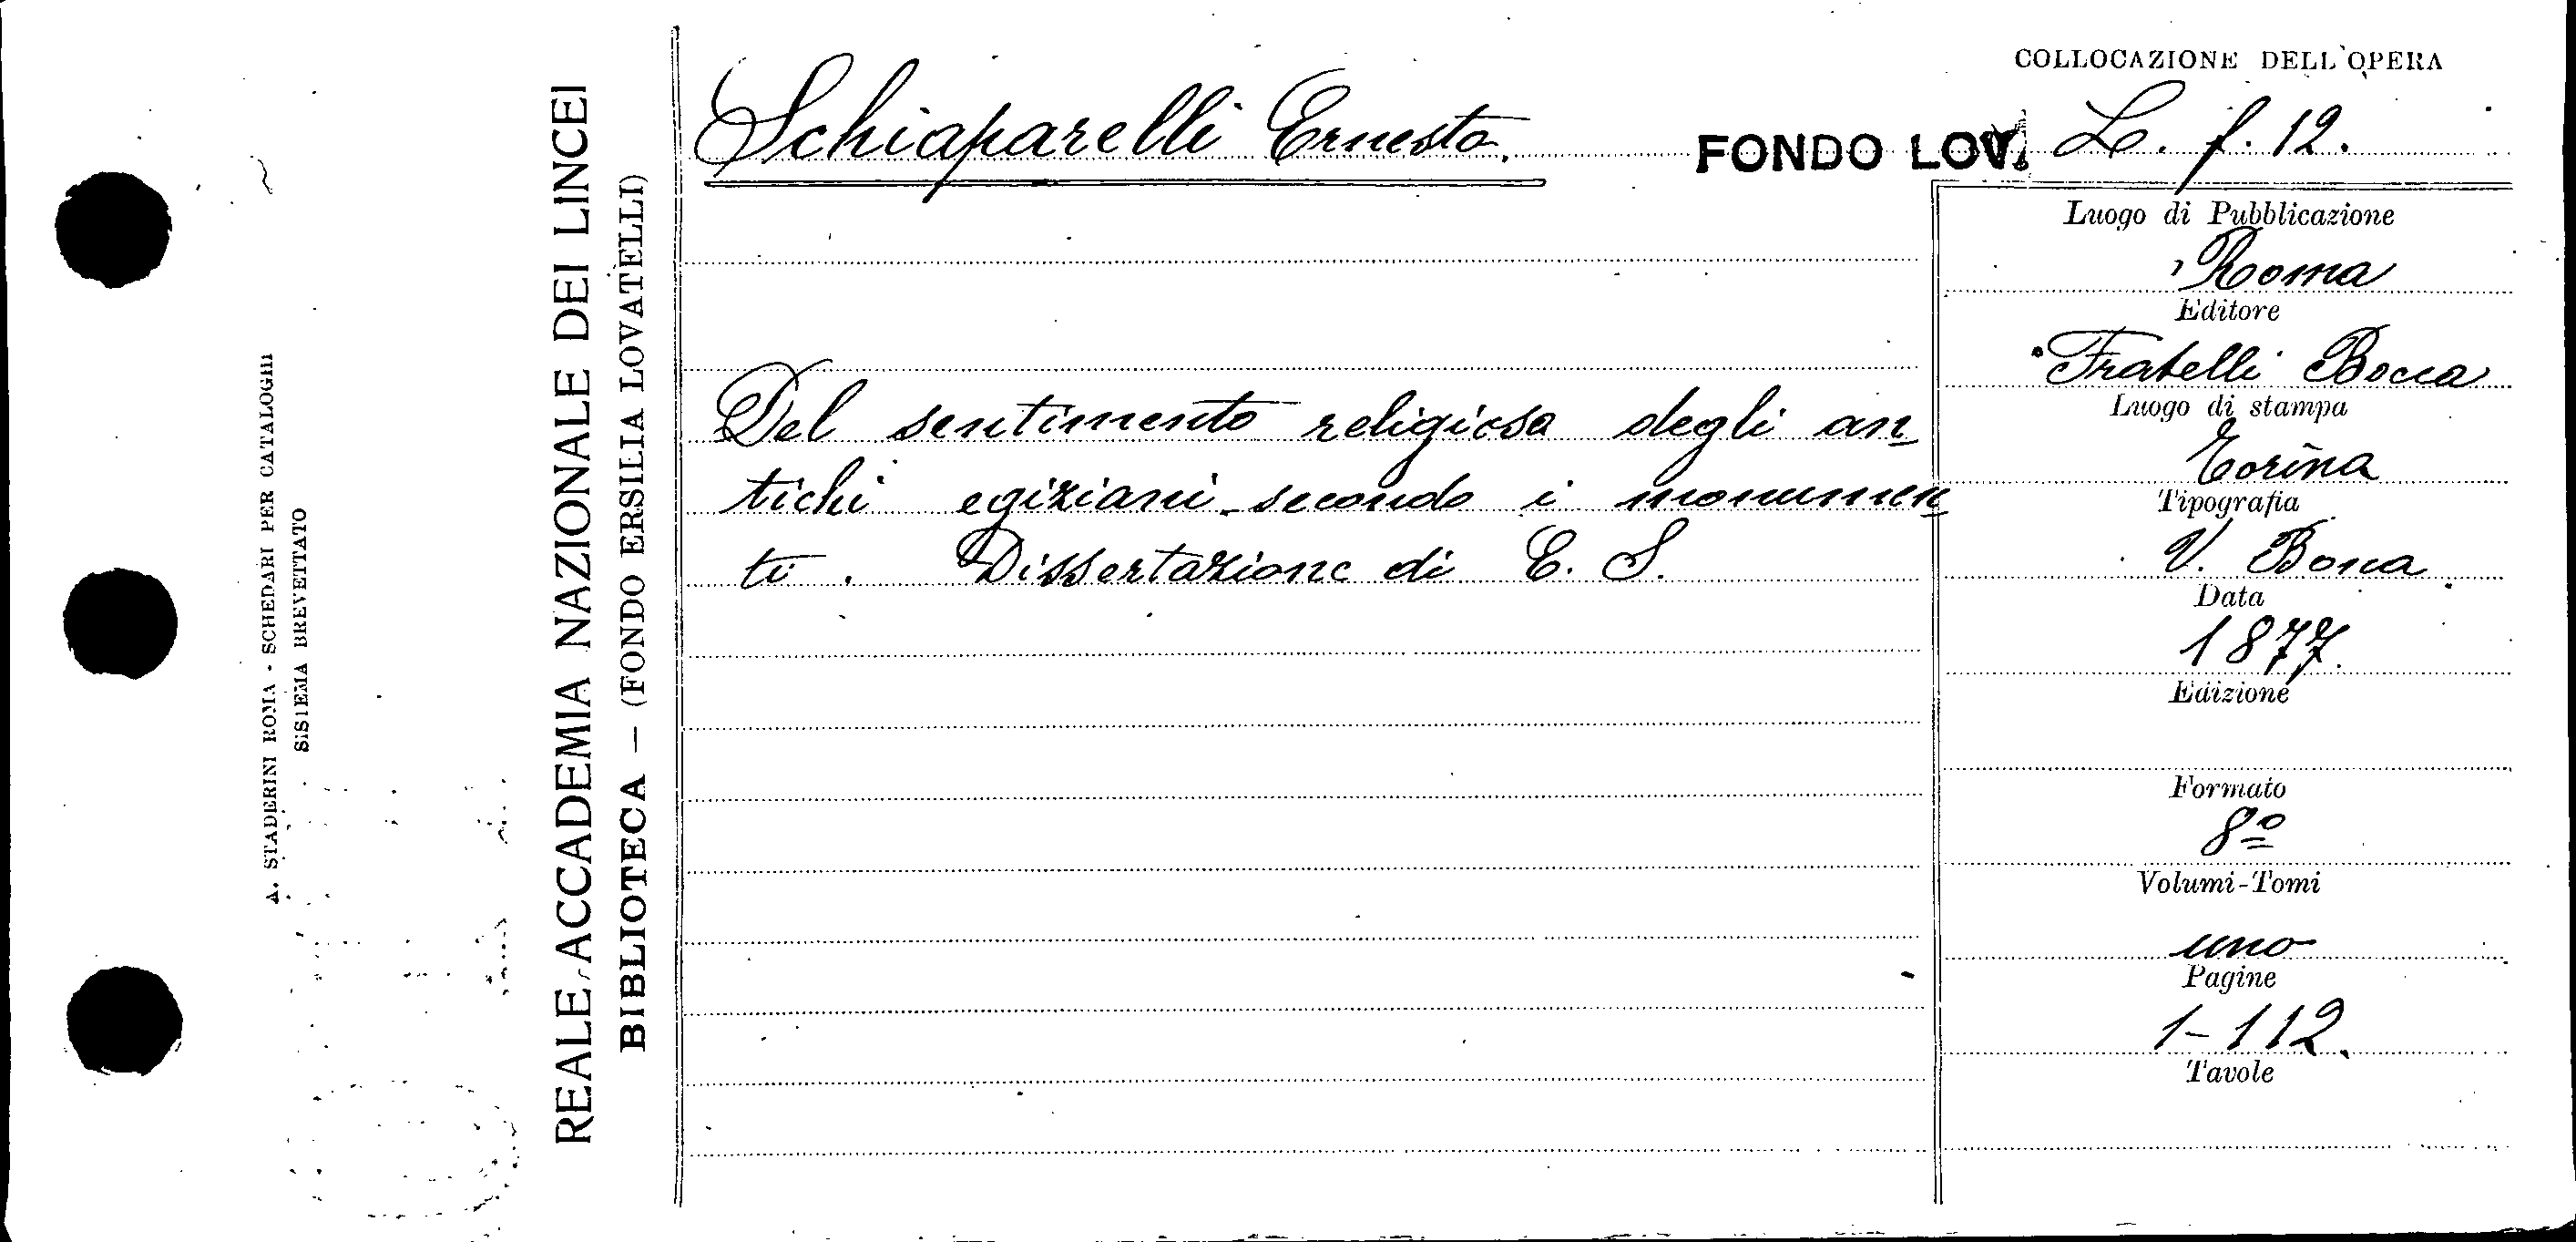 A. STADERINI ROMA - SCHEDARI PER CATALOGHI
SISTEMA BREVETTATO
REALE ACCADEMIA NAZIONALE DEI LINCEI
BIBLIOTECA — (FONDO ERSILIA LOVATELLI)
Schiaparelli Ernesto.
FONDO LOV.
COLLOCAZIONE DELL'OPERA
L. f. 12.
Del sentimento religioso degli an
tichi egiziani secondo i monumen
ti. Dissertazione di E. S.
Luogo di Pubblicazione
Roma
Editore
Fratelli Bocca
Luogo di stampa
Torino
Tipografia
V. Bona
Data
1877.
Edizione
Formato
8º
Volumi-Tomi
uno
Pagine
1-112.
Tavole